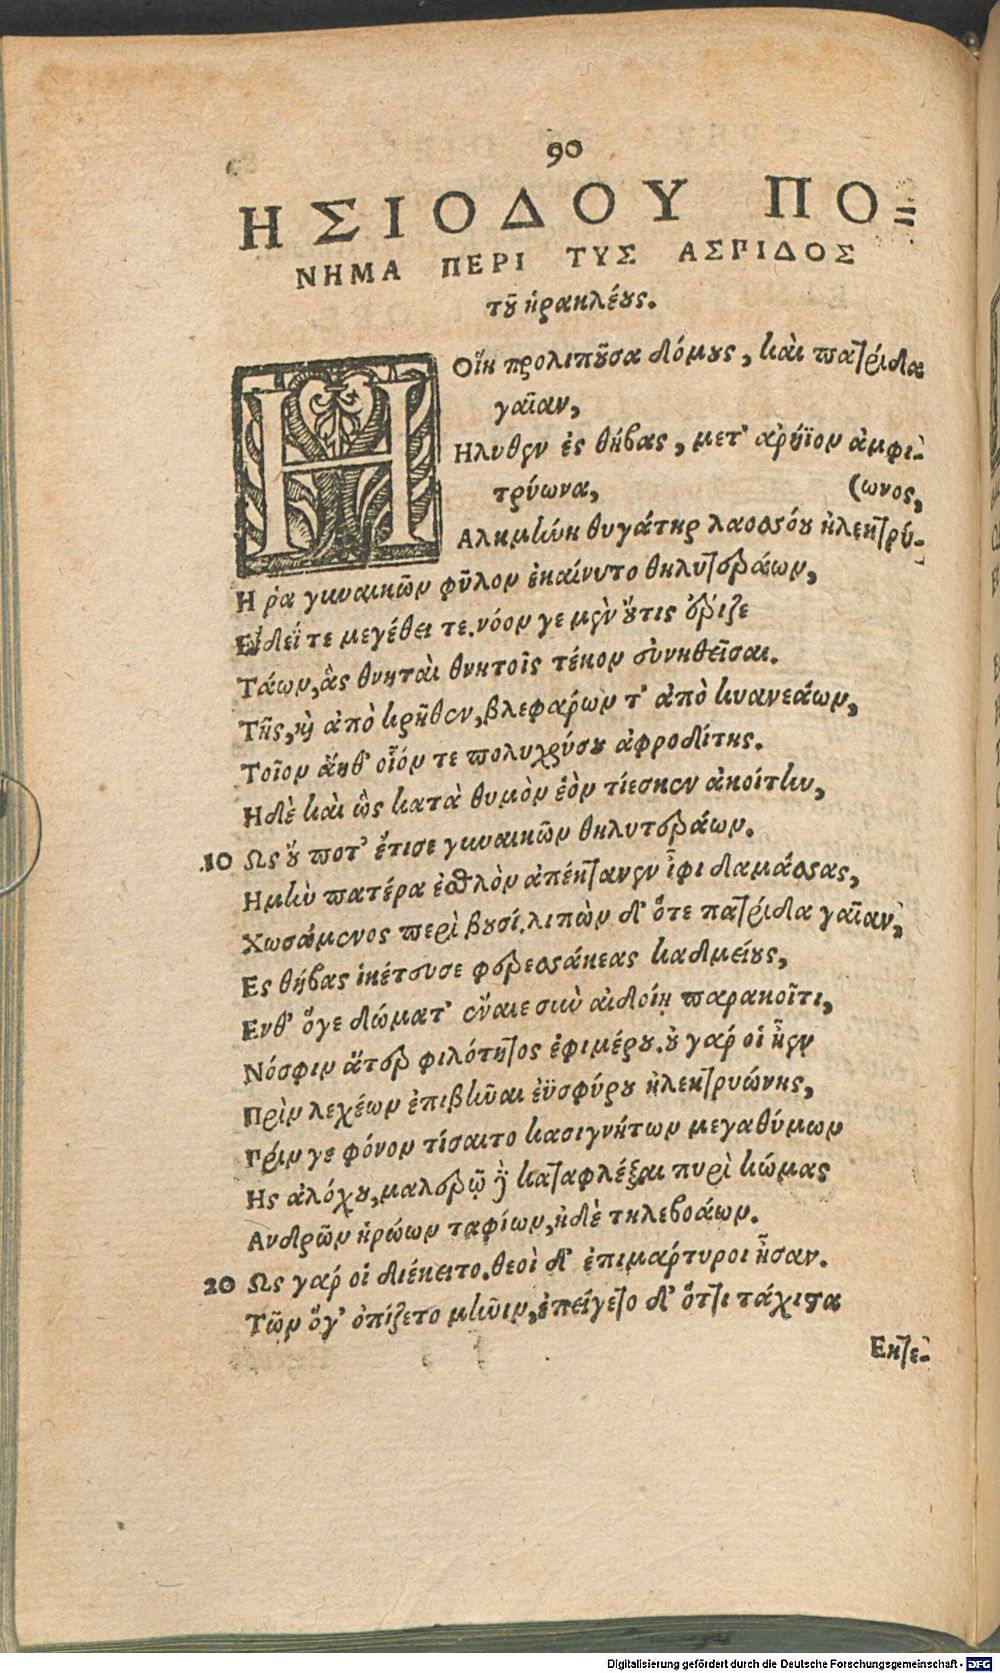 90
ΗΣΙΟΔΟΥ ΠΟ=
ΝΗΜΑ ΠΕΡΙ ΤΥΣ ΑΣΡΙΔΟΣ
τοῦ ἡρακλέους.
Η
Οἵη προλιποῦσα δόμους, καὶ πατρίδα
γαῖαν,
Ηλυθεν ἐς θήβας, μετ' ἀρήϊον ἀμφι-
τρύωνα, (ωνος,
Αλκμήνη θυγάτηρ λαοσσόου ἠλεκτρύ-
Η ῥα γυναικῶν φῦλον ἐκαίνυτο θηλυτεράων,
Εἴδεΐ τε μεγέθει τε. νόον γε μὲν οὔτις ἔριζε
Τάων, ἃς θνηταὶ θνητοῖς τέκον εὐνηθεῖσαι.
Τῆς, καὶ ἀπὸ κρῆθεν, βλεφάρων τ' ἀπὸ κυανεάων,
Τοῖον ἄηθ' οἷόν τε πολυχρύσου ἀφροδίτης.
Ηδὲ καὶ ὣς κατὰ θυμὸν ἑὸν τίεσκεν ἀκοίτην,
10 Ως οὔ ποτ' ἔτισε γυναικῶν θηλυτεράων.
Ημὴν πατέρα ἐσθλὸν ἀπέκτανεν ἶφι δαμάσσας,
Χωσάμενος περὶ βουσί. λιπὼν δ' ὅτε πατρίδα γαῖαν,
Ες θήβας ἱκέτευσε φερεσσάκεας καδμείους,
Ενθ' ὅγε δώματ' ἔναιε σὺν αἰδοίῃ παρακοῖτι,
Νόσφιν ἄτερ φιλότητος ἐφιμέρου. οὐ γάρ οἱ ἦεν
Πρὶν λεχέων ἐπιβῆναι ἐϋσφύρου ἠλεκτρυώνης,
Γρίν γε φόνον τίσαιτο κασιγνήτων μεγαθύμων
Ης ἀλόχου, μαλερῷ δὲ καταφλέξαι πυρὶ κώμας
Ανδρῶν ἡρώων ταφίων, ἠδὲ τηλεβοάων.
20 Ως γάρ οἱ διέκειτο. θεοὶ δ' ἐπιμάρτυροι ἦσαν.
Τῶν ὅγ' ὀπίζετο μῆνιν, ἐπείγετο δ' ὅττι τάχιστα
Εκτε-
Digitalisierung gefördert durch die Deutsche Forschungsgemeinschaft - DFG